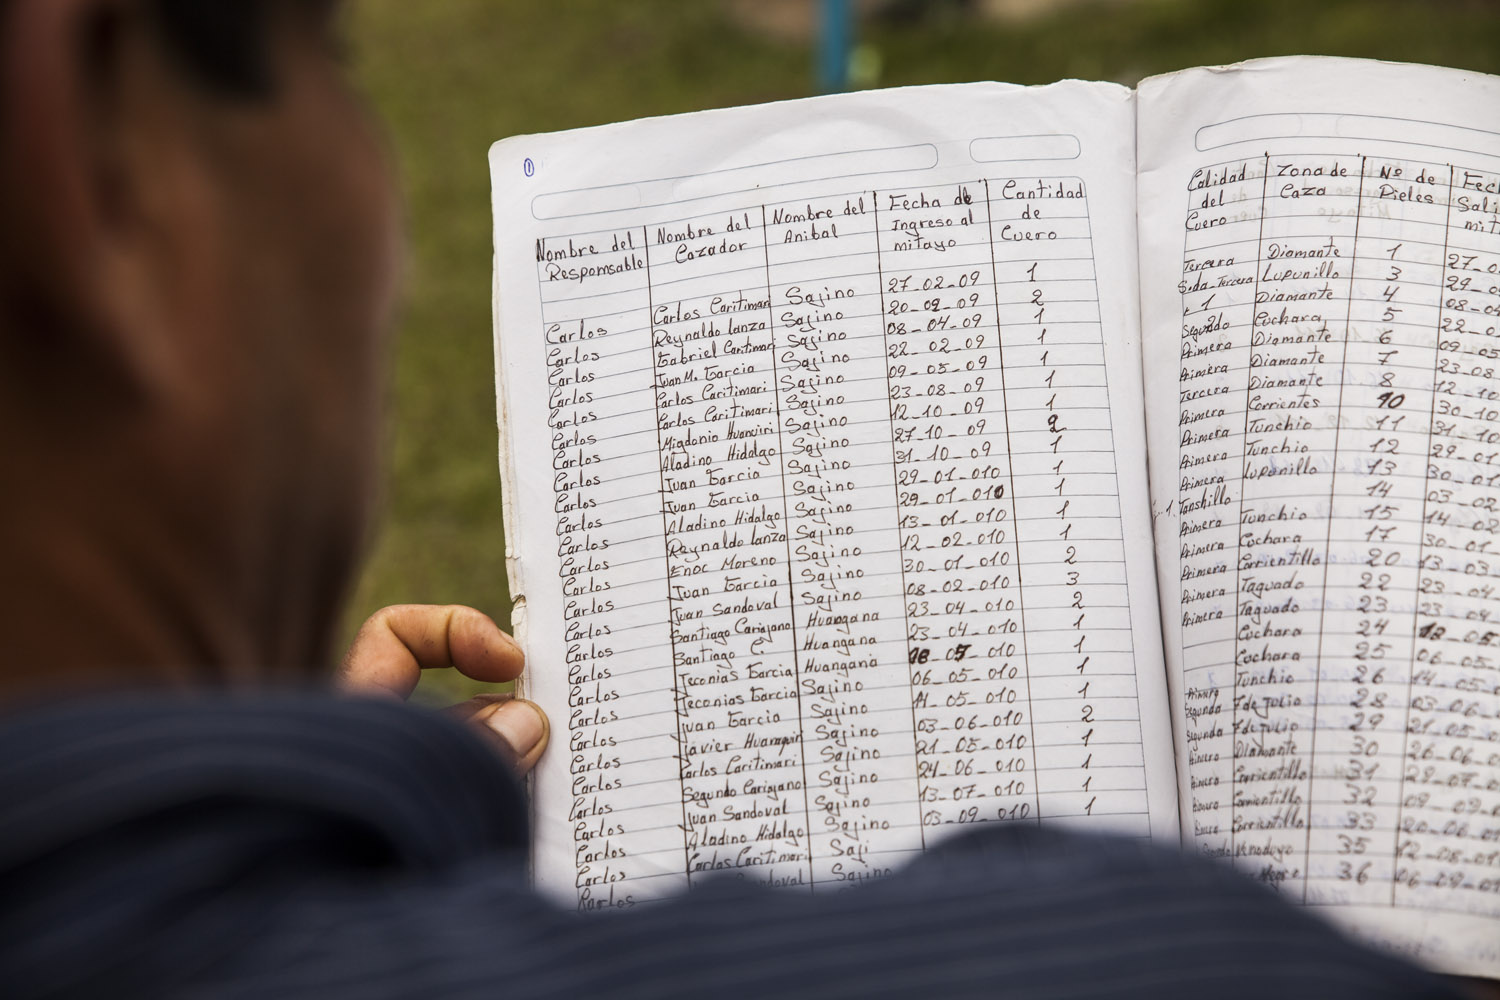 1
Nombre del Responsable Nombre del Cazador Nombre del Anibal Fecha de Ingreso al mitayo Cantidad de Cuero
Carlos Carlos Caritimari Sajino 27-02-09 1
Carlos Reynaldo Lanza Sajino 20-02-09 2
Carlos Gabriel Caritimari Sajino 08-04-09 1
Carlos Juan M. Garcia Sajino 22-02-09 1
Carlos Carlos Caritimari Sajino 09-05-09 1
Carlos Carlos Caritimari Sajino 23-08-09 1
Carlos Migdonio Huaniri Sajino 12-10-09 1
Carlos Aladino Hidalgo Sajino 27-10-09 2
Carlos Juan Garcia Sajino 31-10-09 1
Carlos Juan Garcia Sajino 29-01-010 1
Carlos Aladino Hidalgo Sajino 29-01-010 1
Carlos Reynaldo Lanza Sajino 13-01-010 1
Carlos Enoc Moreno Sajino 12-02-010 1
Carlos Juan Garcia Sajino 30-01-010 2
Carlos Juan Sandoval Sajino 08-02-010 3
Carlos Santiago Cariajano Huangana 23-04-010 2
Carlos Santiago C. Huangana 23-04-010 1
Carlos Jeconias Garcia Huangana 18-05-010 1
Carlos Jeconias Garcia Sajino 06-05-010 1
Carlos Juan Garcia Sajino 14-05-010 1
Carlos Javier Sajino 03-06-010 2
Carlos Carlos Caritimari Sajino 21-05-010 1
Carlos Segundo Cariajano Sajino 24-06-010 1
Carlos Juan Sandoval Sajino 13-07-010 1
Carlos Aladino Hidalgo Sajino 03-09-010 1
Carlos Carlos Caritimari Saji
Karlos Sandoval Sajino
Calidad del Cuero Zona de Caza Nº de Pieles
Tercera Diamante 1 27-0
Sgda-Tercera Lupunillo 3 29-0
1 Diamante 4 08-0
Segundo Cochara 5 22-0
Primera Diamante 6 09-05
Primera Diamante 7 23-08
Tercera Diamante 8 12-10
Primera Corrientes 10 30-10
Primera Tunchio 11 31-10
Primera Tunchio 12 29-01
Primera Lupunillo 13 30-01
Tanshillo 14 03-02
Primera Tunchio 15 14-02
Primera Cochara 17 30-01
Primera Corrientillo 20 13-03
Primera Taguado 22 23-04
Primera Taguado 23 23-04
Cochara 24 18-05
Cochara 25 06-05
Primera Tunchio 26 14-05-0
Segunda 7 de Julio 28 03-06-0
Segunda 7 de Julio 29 21-05-0
Primera Diamante 30 26-06-0
Primera Corrientillo 31 28-07-0
Primera Corrientillo 32 09-09-0
Corrientillo 33 20-06-0
35 12-08-0
36 06-09-0